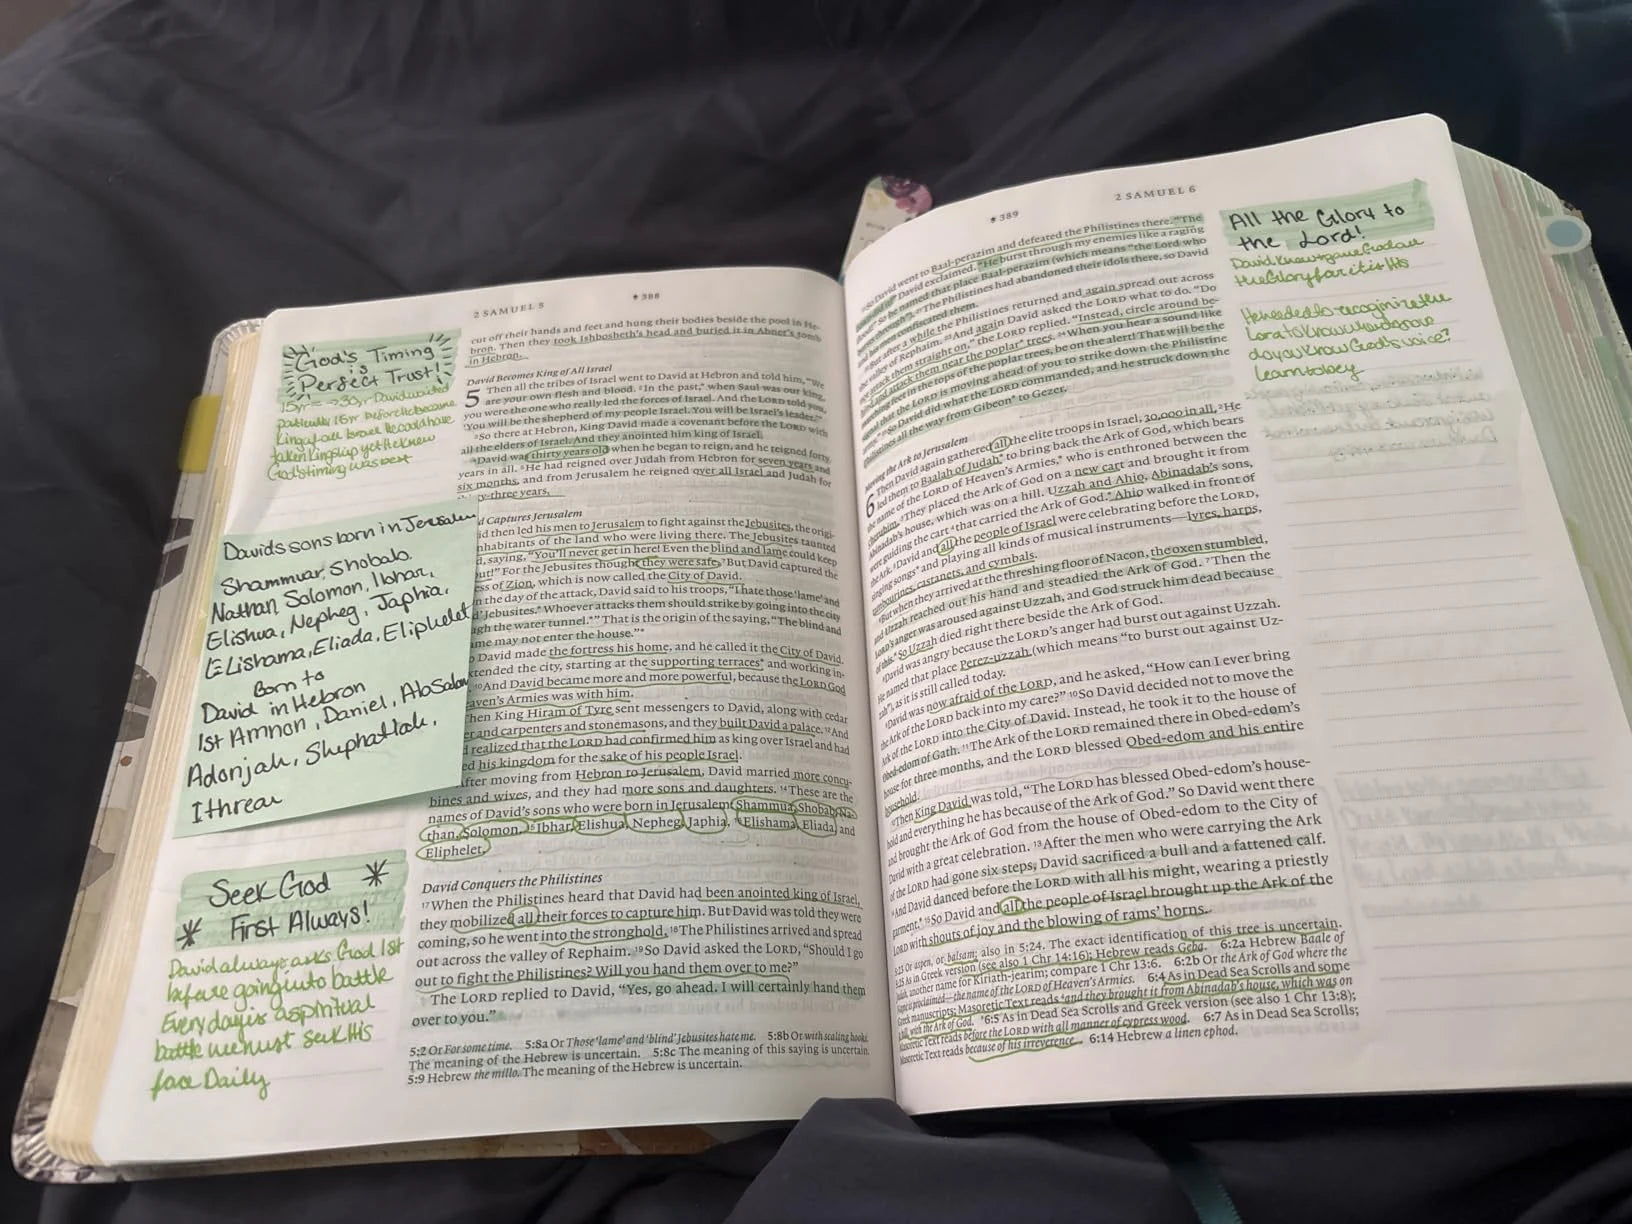 2 SAMUEL 5
388
God's Timing
is
Perfect Trust!
15yr → 30yr David waited
patiently 15yr before he became
King of all Israel he could have
taken Kingship yet he knew
God's timing was best
Davids sons born in Jerusalem
Shammuar, Shobab
Nathan, Solomon, Ibhar,
Elishua, Nepheg, Japhia,
Elishama, Eliada, Eliphelet
Born to
David in Hebron
1st Amnon, Daniel, AbSalom
Adonjah, Shephatiah,
Ithream
Seek God
First Always!
David always asks God 1st
before going into battle
Every day is a spiritual
battle we must seek His
face Daily
cut off their hands and feet and hung their bodies beside the pool in He-
bron. Then they took Ishbosheth's head and buried it in Abner's tomb
in Hebron.
David Becomes King of All Israel
5 Then all the tribes of Israel went to David at Hebron and told him, "We
are your own flesh and blood. ²In the past, when Saul was our king,
you were the one who really led the forces of Israel. And the LORD told you,
'You will be the shepherd of my people Israel. You will be Israel's leader.'"
³So there at Hebron, King David made a covenant before the LORD with
all the elders of Israel. And they anointed him king of Israel.
⁴David was thirty years old when he began to reign, and he reigned forty
years in all. ⁵He had reigned over Judah from Hebron for seven years and
six months, and from Jerusalem he reigned over all Israel and Judah for
ty-three years.
d Captures Jerusalem
id then led his men to Jerusalem to fight against the Jebusites, the origi-
nhabitants of the land who were living there. The Jebusites taunted
d, saying, "You'll never get in here! Even the blind and lame could keep
ut!" For the Jebusites thought they were safe. ⁷But David captured the
ss of Zion, which is now called the City of David.
n the day of the attack, David said to his troops, "I hate those 'lame' and
d' Jebusites.* Whoever attacks them should strike by going into the city
gh the water tunnel.*" That is the origin of the saying, "The blind and
ame may not enter the house."*
David made the fortress his home, and he called it the City of David.
tended the city, starting at the supporting terraces* and working in-
¹⁰And David became more and more powerful, because the LORD God
eaven's Armies was with him.
hen King Hiram of Tyre sent messengers to David, along with cedar
er and carpenters and stonemasons, and they built David a palace. ¹²And
d realized that the LORD had confirmed him as king over Israel and had
ed his kingdom for the sake of his people Israel.
After moving from Hebron to Jerusalem, David married more concu-
bines and wives, and they had more sons and daughters. ¹⁴These are the
names of David's sons who were born in Jerusalem: Shammua, Shobab, Na-
than, Solomon, ¹⁵Ibhar, Elishua, Nepheg, Japhia, ¹⁶Elishama, Eliada, and
Eliphelet.
David Conquers the Philistines
¹⁷When the Philistines heard that David had been anointed king of Israel,
they mobilized all their forces to capture him. But David was told they were
coming, so he went into the stronghold. ¹⁸The Philistines arrived and spread
out across the valley of Rephaim. ¹⁹So David asked the LORD, "Should I go
out to fight the Philistines? Will you hand them over to me?"
The LORD replied to David, "Yes, go ahead. I will certainly hand them
over to you."
5:2 Or For some time. 5:8a Or Those 'lame' and 'blind' Jebusites hate me. 5:8b Or with scaling hooks.
The meaning of the Hebrew is uncertain. 5:8c The meaning of this saying is uncertain.
5:9 Hebrew the millo. The meaning of the Hebrew is uncertain.
389
2 SAMUEL 6
²⁰So David went to Baal-perazim and defeated the Philistines there. "The
David exclaimed. "He burst through my enemies like a raging
So he named that place Baal-perazim (which means "the Lord who
²¹The Philistines had abandoned their idols there, so David
his men confiscated them.
²²But after a while the Philistines returned and again spread out across
the valley of Rephaim. ²³And again David asked the LORD what to do. "Do
not attack them straight on," the LORD replied. "Instead, circle around be-
hind and attack them near the poplar* trees. ²⁴When you hear a sound like
marching feet in the tops of the poplar trees, be on the alert! That will be the
signal that the LORD is moving ahead of you to strike down the Philistine
²⁵So David did what the LORD commanded, and he struck down the
Philistines all the way from Gibeon* to Gezer.
Moving the Ark to Jerusalem
6 Then David again gathered all the elite troops in Israel, 30,000 in all. ²He
led them to Baalah of Judah* to bring back the Ark of God, which bears
the name of the LORD of Heaven's Armies,* who is enthroned between the
cherubim. ³They placed the Ark of God on a new cart and brought it from
Abinadab's house, which was on a hill. Uzzah and Ahio, Abinadab's sons,
were guiding the cart ⁴that carried the Ark of God.* Ahio walked in front of
the Ark. ⁵David and all the people of Israel were celebrating before the LORD,
singing songs* and playing all kinds of musical instruments—lyres, harps,
tambourines, castanets, and cymbals.
⁶But when they arrived at the threshing floor of Nacon, the oxen stumbled,
and Uzzah reached out his hand and steadied the Ark of God. ⁷Then the
LORD's anger was aroused against Uzzah, and God struck him dead because
of this.* So Uzzah died right there beside the Ark of God.
⁸David was angry because the LORD's anger had burst out against Uzzah.
He named that place Perez-uzzah (which means "to burst out against Uz-
zah"), as it is still called today.
⁹David was now afraid of the LORD, and he asked, "How can I ever bring
the Ark of the LORD back into my care?" ¹⁰So David decided not to move the
Ark of the LORD into the City of David. Instead, he took it to the house of
Obed-edom of Gath. ¹¹The Ark of the LORD remained there in Obed-edom's
house for three months, and the LORD blessed Obed-edom and his entire
household.
¹²Then King David was told, "The LORD has blessed Obed-edom's house-
hold and everything he has because of the Ark of God." So David went there
and brought the Ark of God from the house of Obed-edom to the City of
David with a great celebration. ¹³After the men who were carrying the Ark
of the LORD had gone six steps, David sacrificed a bull and a fattened calf.
¹⁴And David danced before the LORD with all his might, wearing a priestly
garment.* ¹⁵So David and all the people of Israel brought up the Ark of the
LORD with shouts of joy and the blowing of rams' horns.
5:23 Or aspen, or balsam; also in 5:24. The exact identification of this tree is uncertain.
5:25 As in Greek version (see also 1 Chr 14:16); Hebrew reads Geba. 6:2a Hebrew Baale of
Judah, another name for Kiriath-jearim; compare 1 Chr 13:6. 6:2b Or the Ark of God where the
Name is proclaimed—the name of the LORD of Heaven's Armies. 6:4 As in Dead Sea Scrolls and some
Greek manuscripts; Masoretic Text reads and they brought it from Abinadab's house, which was on
a hill, with the Ark of God. 6:5 As in Dead Sea Scrolls and Greek version (see also 1 Chr 13:8);
Masoretic Text reads before the LORD with all manner of cypress wood. 6:7 As in Dead Sea Scrolls;
Masoretic Text reads because of his irreverence. 6:14 Hebrew a linen ephod.
All the Glory to
the Lord!
David Knows gave God all
the Glory for it is His
He needed to recoginize the
Lord to Know
do you Know God's voice?
Learn to obey